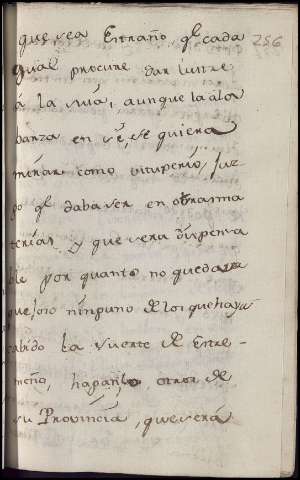 que sea Estraño q̃ cada 256
qual procure dar lustre
a la suia, aunque la ala
banza en si, se quiera
mirar como vituperio,
po q̃ daba ver en otras ma
terias. y que sera dispensa
ble por quanto no quedara
quejoso ninguno de los que haya
cabido la suerte de Estre-
meño, hagan lo otros de
su Provincia, que sera